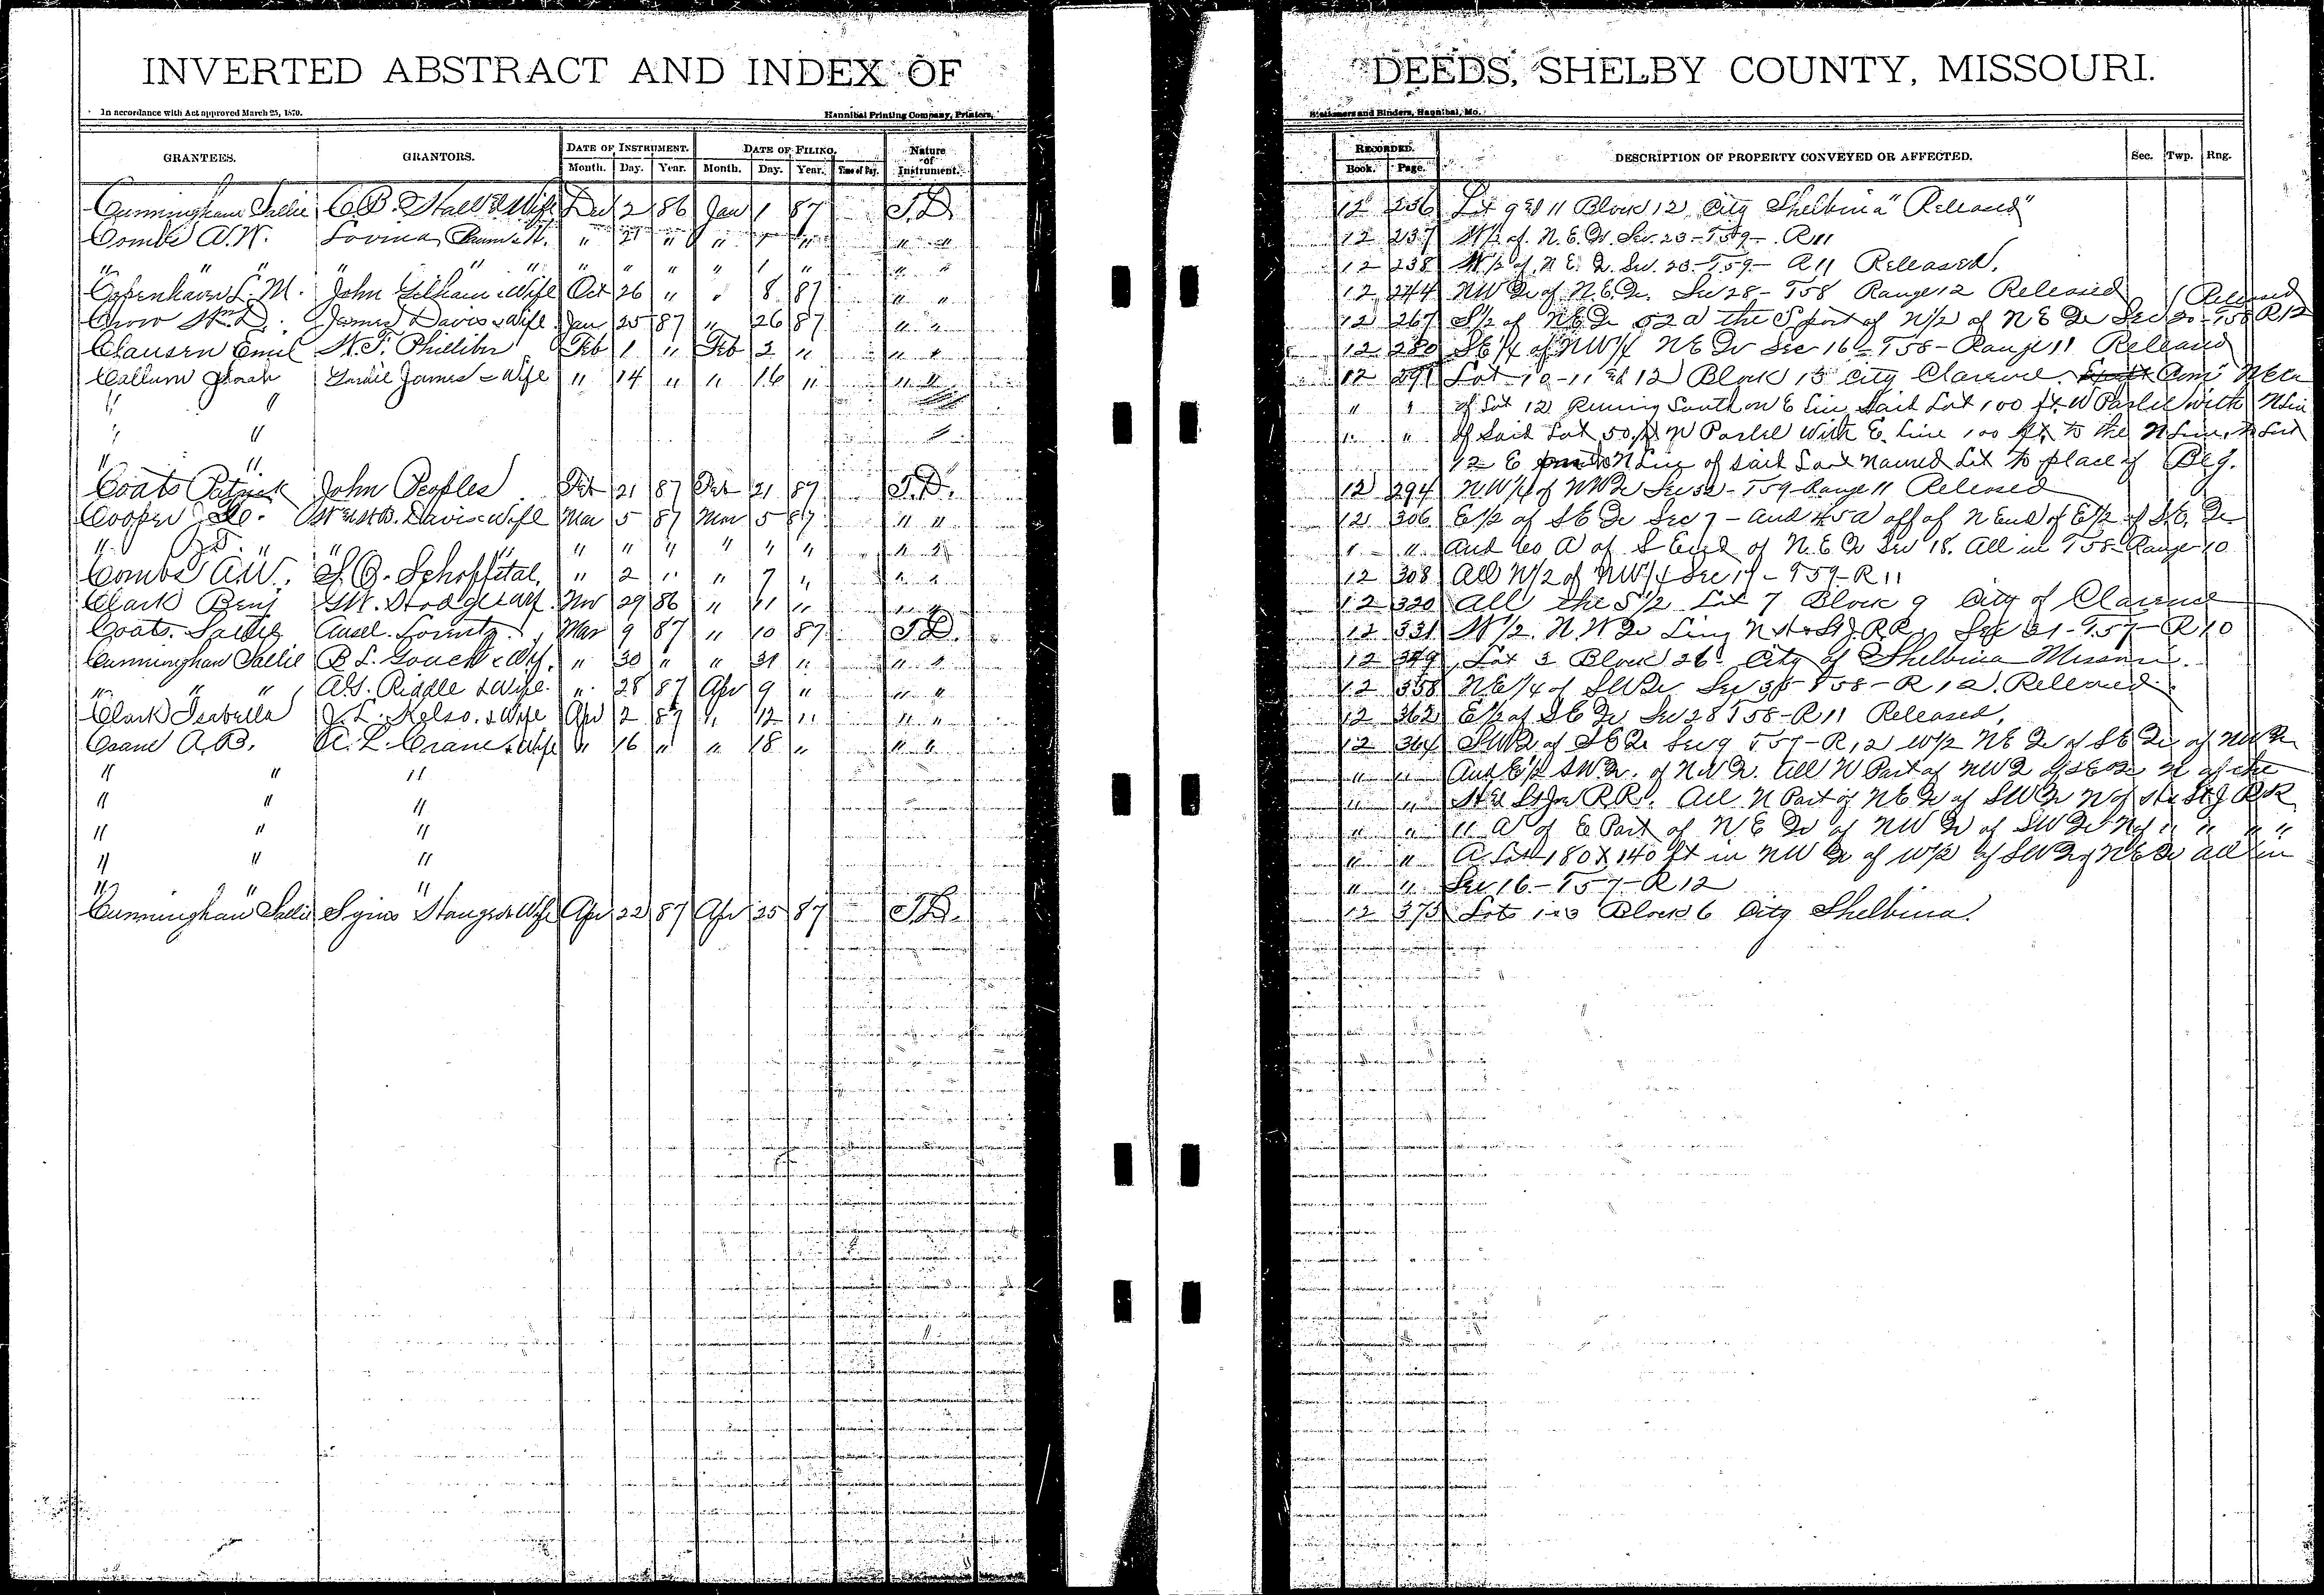 INVERTED ABSTRACT AND INDEX OF DEEDS, SHELBY COUNTY, MISSOURI.
In accordance with Act approved March 25, 1870. Hannibal Printing Company, Printers, Stationers and Binders, Hannibal, Mo.
GRANTEES. GRANTORS. DATE OF INSTRUMENT. DATE OF FILING. Nature of Instrument. RECORDED. DESCRIPTION OF PROPERTY CONVEYED OR AFFECTED. Sec. Twp. Rng.
Month. Day. Year. Month. Day. Year. Time of Day. Book. Page.
Cunningham Sallie C.B. & Wife Dec 2 86 Jan 1 87 T.D. 12 236 Lot 9 & 11 Block 12 City Shelbina "Released"
Combs A.W. Lovina " 21 " " 1 " " " 12 237 W/2 of N.E. Qr. Sec. 23 - T59 - R11
" " " " " " " " " " 1 " " " 12 238 W/2 of N.E. Qr. Sec. 23 - T59 - R11 Released.
Copenhaver L.M. John Gilham & Wife Oct 26 " " 8 87 " " 12 244 NW Qr of N.E. Qr. Sec 28 - T58 Range 12 Released
Crow Wm D. James Davis & Wife Jan 25 87 " 26 87 " " 12 267 S/2 of NE Qr 52 a the S part of N/2 of NE Qr Sec 20 - T58 R12 Released
Clausen Emil Phillibir Feb 1 " Feb 2 " " " 12 280 SE/4 of NW/4 NE Qr Sec 16 - T58 - Range 11 Released
Callum James & Wife " 14 " " 16 " " " 12 291 Lot 10-11 & 12 Block 15 City Clarence. Com NE Cr
" " " " of Lot 12 Runing South on E Line said Lot 100 ft W Parlel with N Line
" " " " of said Lot 50 ft N Parlel with E. Line 100 ft to the N Line,
" " 12 E N Line of said Last Named Lot to place of Beg.
Coats Patrick John Peoples Feb 21 87 Feb 21 87 T.D. 12 294 NW/4 of NW Qr Sec 32 - T59 Range 11 Released
Cooper Davis & Wife Mar 5 87 Mar 5 87 " " 12 306 E/2 of SE Qr Sec 7 - and 45 a off of N End of E/2 of S.E. Qr
" " " " " " " " " " " " " And 60 A of S End of N.E. Qr Sec 18. All in T58 Range 10
Combs A.W. " 2 " " 7 " " " 12 308 All N/2 of NW/4 Sec 14 - T59 - R11
Clark Benj Nov 29 86 " 11 " " " 12 320 All the S 1/2 Lot 7 Block 9 City of Clarence
Coats Ansel Lountz Mar 9 87 " 10 87 T.D. 12 331 W/2 N.W Qr Sec 31 - T57 - R10
Cunningham Sallie B.L. Gouch & Wf. " 30 " " 31 " " " 12 349 Lot 3 Block 26 City of Shelbina Missouri.
" " " A.J. Riddle & Wife. " 28 87 Apr 9 " " " 12 358 NE/4 of SW Qr Sec 35 - T58 - R12. Released
Clark Isabella J.L. Kelso & Wife Apr 2 87 " 12 " " " 12 362 E/2 of SE Qr Sec 28 T58 - R11 Released.
Crane A.B. A.L. Crane & Wife " 16 " " 18 " " " 12 364 SW Qr of SE Qr Sec 9 T57 - R12 W/2 NE Qr of SE Qr of NW Qr
" " " " " And E/2 SW Qr. of NW Qr. All N Part of NW Q of SE Qr N of the
" " " " " H & St Joe RR. All N Part of NE Qr of SW Qr N of H & St J RR
" " " " " 11 A of E Part of NE Qr of NW Qr of SW Qr N of " " " "
" " " " " A Lot 180 x 140 ft in NW Qr of W/2 of SW Qr of NE Qr all in
" " " " " Sec 16 - T57 - R12
Cunningham Sallie & Wife Apr 22 87 Apr 25 87 T.D. 12 375 Lots 1 & 3 Block 6 City Shelbina.